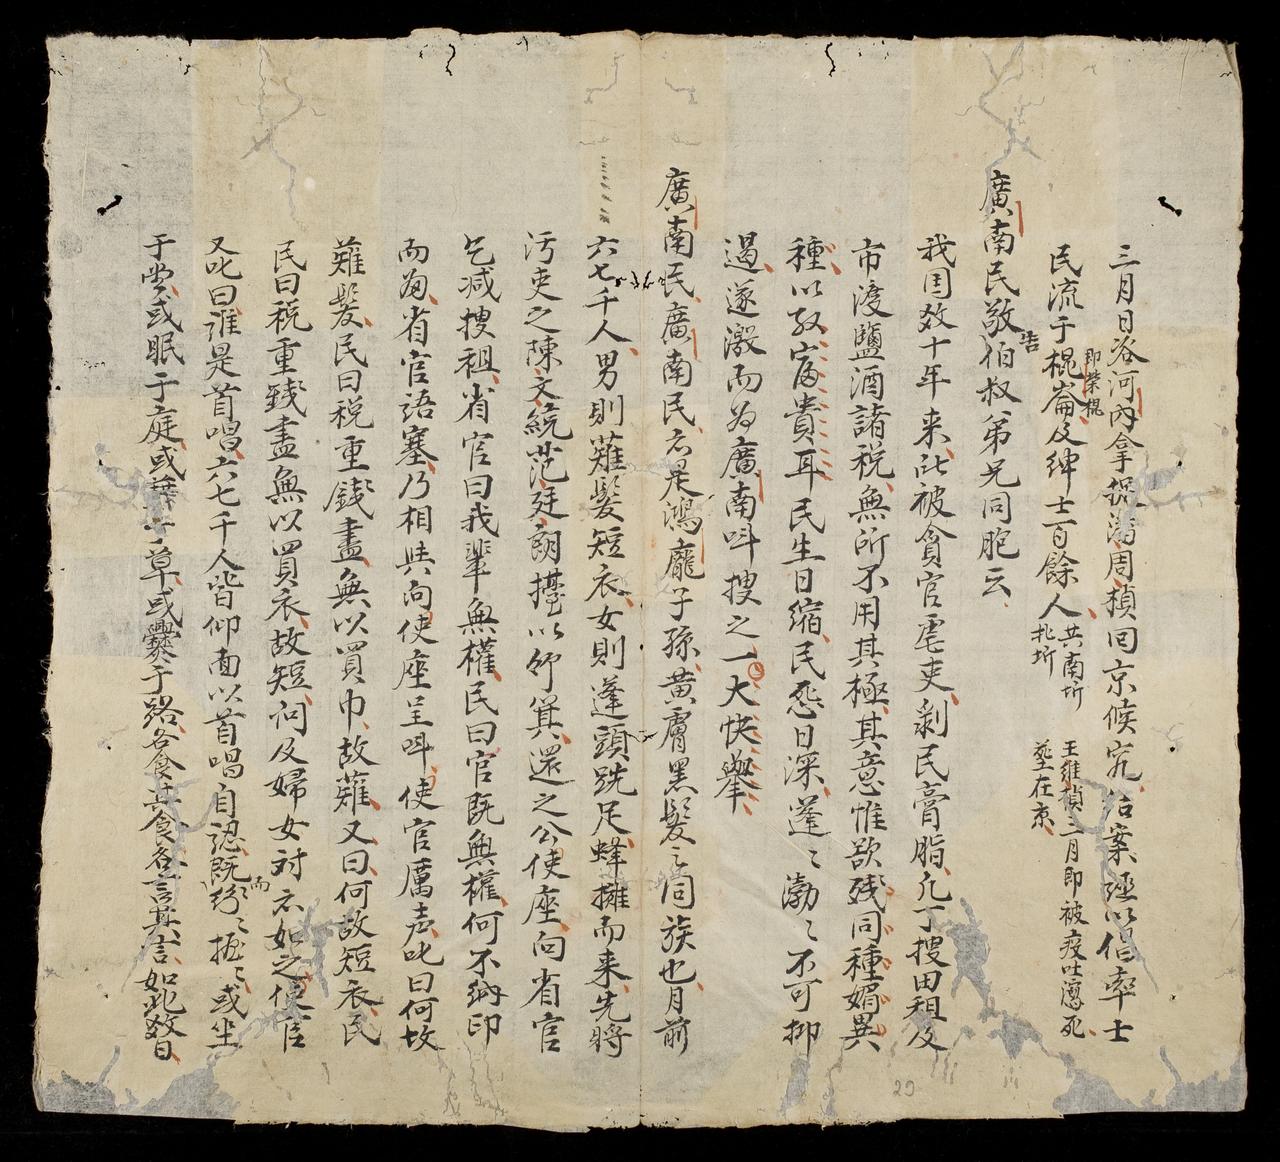 三月日洛河內拿捉潘周楨囘京候究結案經以倡率士
民流于棍崙及紳士百餘人
即崇棍
共南圻
北圻
王維楨三月即被疫吐瀉死
塟在京
廣南民敬告伯叔弟兄同胞云
我国数十年来民被貪官虐吏剝民膏脂凢丁搜田租及
市渡鹽酒諸税無所不用其極其意惟欲残同種媚異
種以玫富貴耳民生日縮民怨日深蓬〻渤〻不可抑
遏遂激而為廣南呌搜之一大快舉
廣南民廣南民亦是鴻龐子孫黄膚黑髮之同族也月前
六七千人男則薙髮短衣女則蓬頭跣足蜂擁而来先將
污吏之陳文統范廷朗擡以竹箕還之公使座向省官
乞减搜租省官曰我輩無權民曰官既無權何不納印
而為省官語塞乃相共向使座呈呌使官厲声叱曰何故
薙髮民曰税重錢盡無以買巾故薙又曰何故短衣民
民曰税重錢盡無以買衣故短问及婦女対亦如之使官
又叱曰誰是首唱六七千人皆仰面以首唱自認既而紛〻擾〻或坐
于堂或眠于庭或于草或爨于路各食其食各言其言如此数日